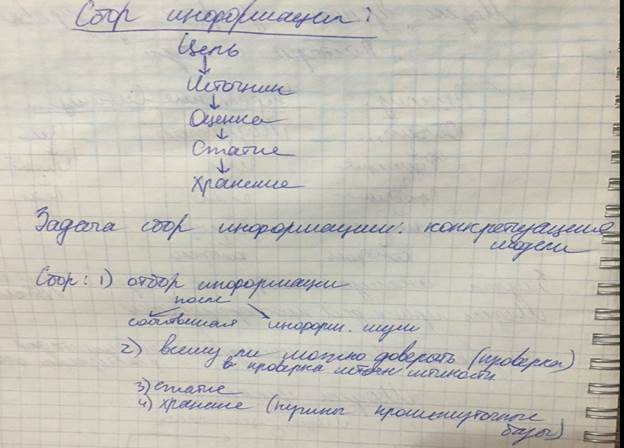 Сбор информации:
Цель
Источник
Оценка
Сжатие
Хранение
Задача сбор информации: конкретизация
модели
Сбор: 1) отбор информации
после
собственная информ. щум
2) всему ли можно доверять (проверка)
проверка источн
3) сжатие
4) хранение (нужны промежуточные
базы)